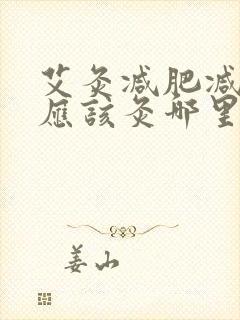 艾灸减肥减
应該灸哪里
姜山